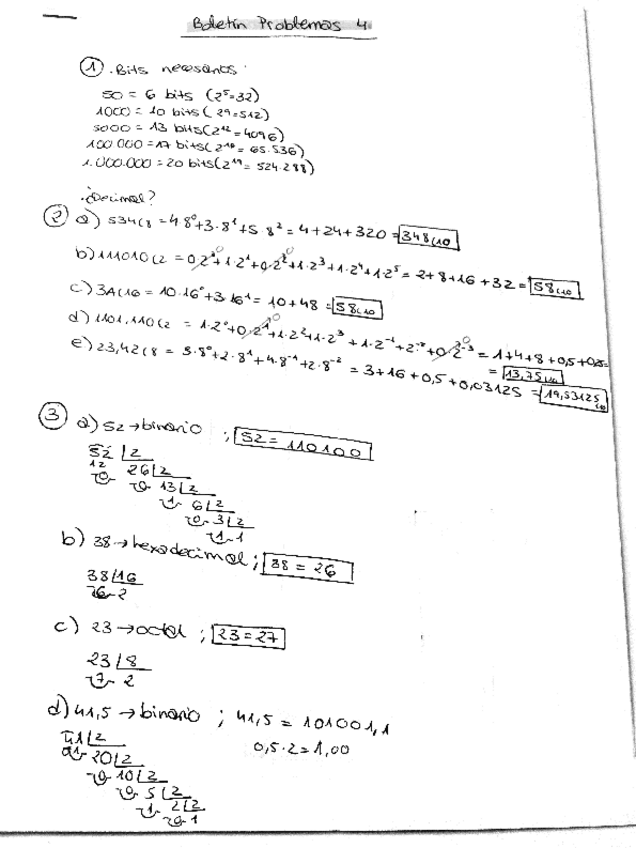 Boletín Problemas 4
1 . Bits necesarios:
50 = 6 bits (2⁵=32)
1000 = 10 bits (2⁹=512)
5000 = 13 bits (2¹²=4096)
100 000 = 17 bits (2¹⁶ = 65.536)
1.000.000 = 20 bits (2¹⁹ = 524.288)
¿Decimal?
2 a) 534(8 = 4·8⁰+3·8¹+5·8² = 4+24+320 = 348(10
b) 111010(2 = 0·2⁰+1·2¹+0·2²+1·2³+1·2⁴+1·2⁵ = 2+8+16+32 = 58(10
c) 3A(16 = 10·16⁰+3·16¹ = 10+48 = 58(10
d) 1101,110(2 = 1·2⁰+0·2¹+1·2²+1·2³+1·2⁻¹+2⁻²+0·2⁻³ = 1+4+8+0,5+0,25=
= 13,75(10
e) 23,42(8 = 3·8⁰+2·8¹+4·8⁻¹+2·8⁻² = 3+16+0,5+0,03125 = 19,53125(10
3 a) 52→binario ; 52 = 110100
52 | 2
12 26 | 2
0 0 13 | 2
1 6 | 2
0 3 | 2
1 1
b) 38→hexadecimal ; 38 = 26
38 | 16
6 2
c) 23→octal ; 23 = 27
23 | 8
7 2
d) 41,5→binario ; 41,5 = 101001,1
41 | 2 0,5·2=1,00
01 20 | 2
0 10 | 2
0 5 | 2
1 2 | 2
0 1